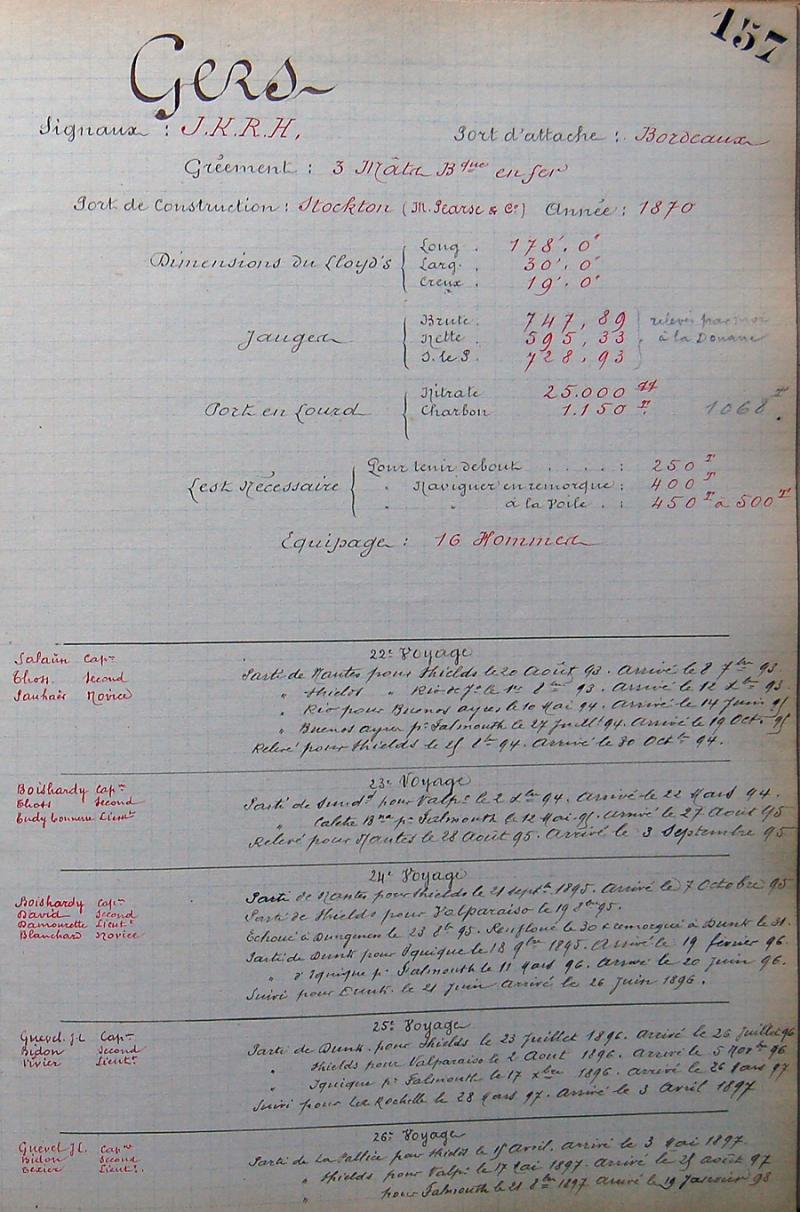 157
Gers
Signaux : J.K.R.H, Port d'attache : Bordeaux
Gréement : 3 Mâts Bque en fer
Port de Construction : Stockton (M. Pearse & Co) Année : 1870
Dimensions du Lloyd's
Long . 178'. 0"
Larg . 30'. 0"
Creux . 19'. 0"
Jauges
Brute . 747, 89
Nette . 595, 33
S. le P. 728, 93
relevés par moi
à la Douane
Port en Lourd
Nitrate 25.000 qx
Charbon 1.150 T. 1068 T.
Lest Nécessaire
Pour tenir debout . . . . : 250 T
" Naviguer en remorque : 400 T
" " à la Voile . : 450 T à 500 T
Equipage : 16 Hommes
22e Voyage
Salaün Capne
Thoss Second
Novice
Parti de Nantes pour Shields le 20 Août 93. Arrivé le 8 7bre 93.
" Shields " Rio de Jo le 1er 8bre 93. Arrivé le 12 Xbre 93.
" Rio pour Buenos ayres le 10 Mai 94. Arrivé le 14 Juin
" Buenos ayres pr Falmouth le 27 Juillt 94. Arrivé le 19 Octe
Relevé pour Shields le 8bre 94. Arrivé le 30 Octbre 94.
23e Voyage
Boishardy Capne
Thoss Second
Eudy Lieutt
Parti de Sundd pour Valpo le 2 Xbre 94. Arrivé le 22 Mars 94.
" Caleta Bna pr Falmouth le 12 Mai 95. Arrivé le 27 Août 95
Relevé pour Nantes le 28 Août 95. Arrivé le 3 Septembre 95
24e Voyage
Boishardy Capne
David Second
Damourette Lieutt
Blanchard Novice
Parti de Nantes pour Shields le 21 Septbre 1895. Arrivé le 7 Octobre 95
Parti de Shields pour Valparaiso le 19 8bre 95.
Echoué à Dungeness le 23 8bre 95. Renfloué le 30 & remorqué à Dunk le 31.
Parti de Dunk pour Iquique le 18 9bre 1895. Arrivé le 19 février 96.
" d'Iquique pr Falmouth le 11 Mars 96. Arrivé le 20 Juin 96.
Suivi pour Dunk. le 21 Juin Arrivé le 26 Juin 1896.
25e Voyage
Guevel. J.L Capne
Bidon Second
Vivier Lieutt
Parti de Dunk. pour Shields le 23 Juillet 1896. Arrivé le 26 Juillet 96
" Shields pour Valparaiso le 2 Aout 1896. Arrivé le 5 Novbre 96
" Iquique pr Falmouth le 17 Xbre 1896. Arrivé le 26 Mars 97
Suivi pour La Rochelle le 28 Mars 97. Arrivé le 3 Avril 1897
26e Voyage
Guevel J.L. Capne
Bidon Second
Texier Lieutt.
Parti de La Pallice pour Shields le 15 Avril. Arrivé le 3 Mai 1897.
" Shields pour Valpo le 17 Mai 1897. Arrivé le 25 août 97
" pour Falmouth le 21 8bre 1897 Arrivé le 19 Janvier 98